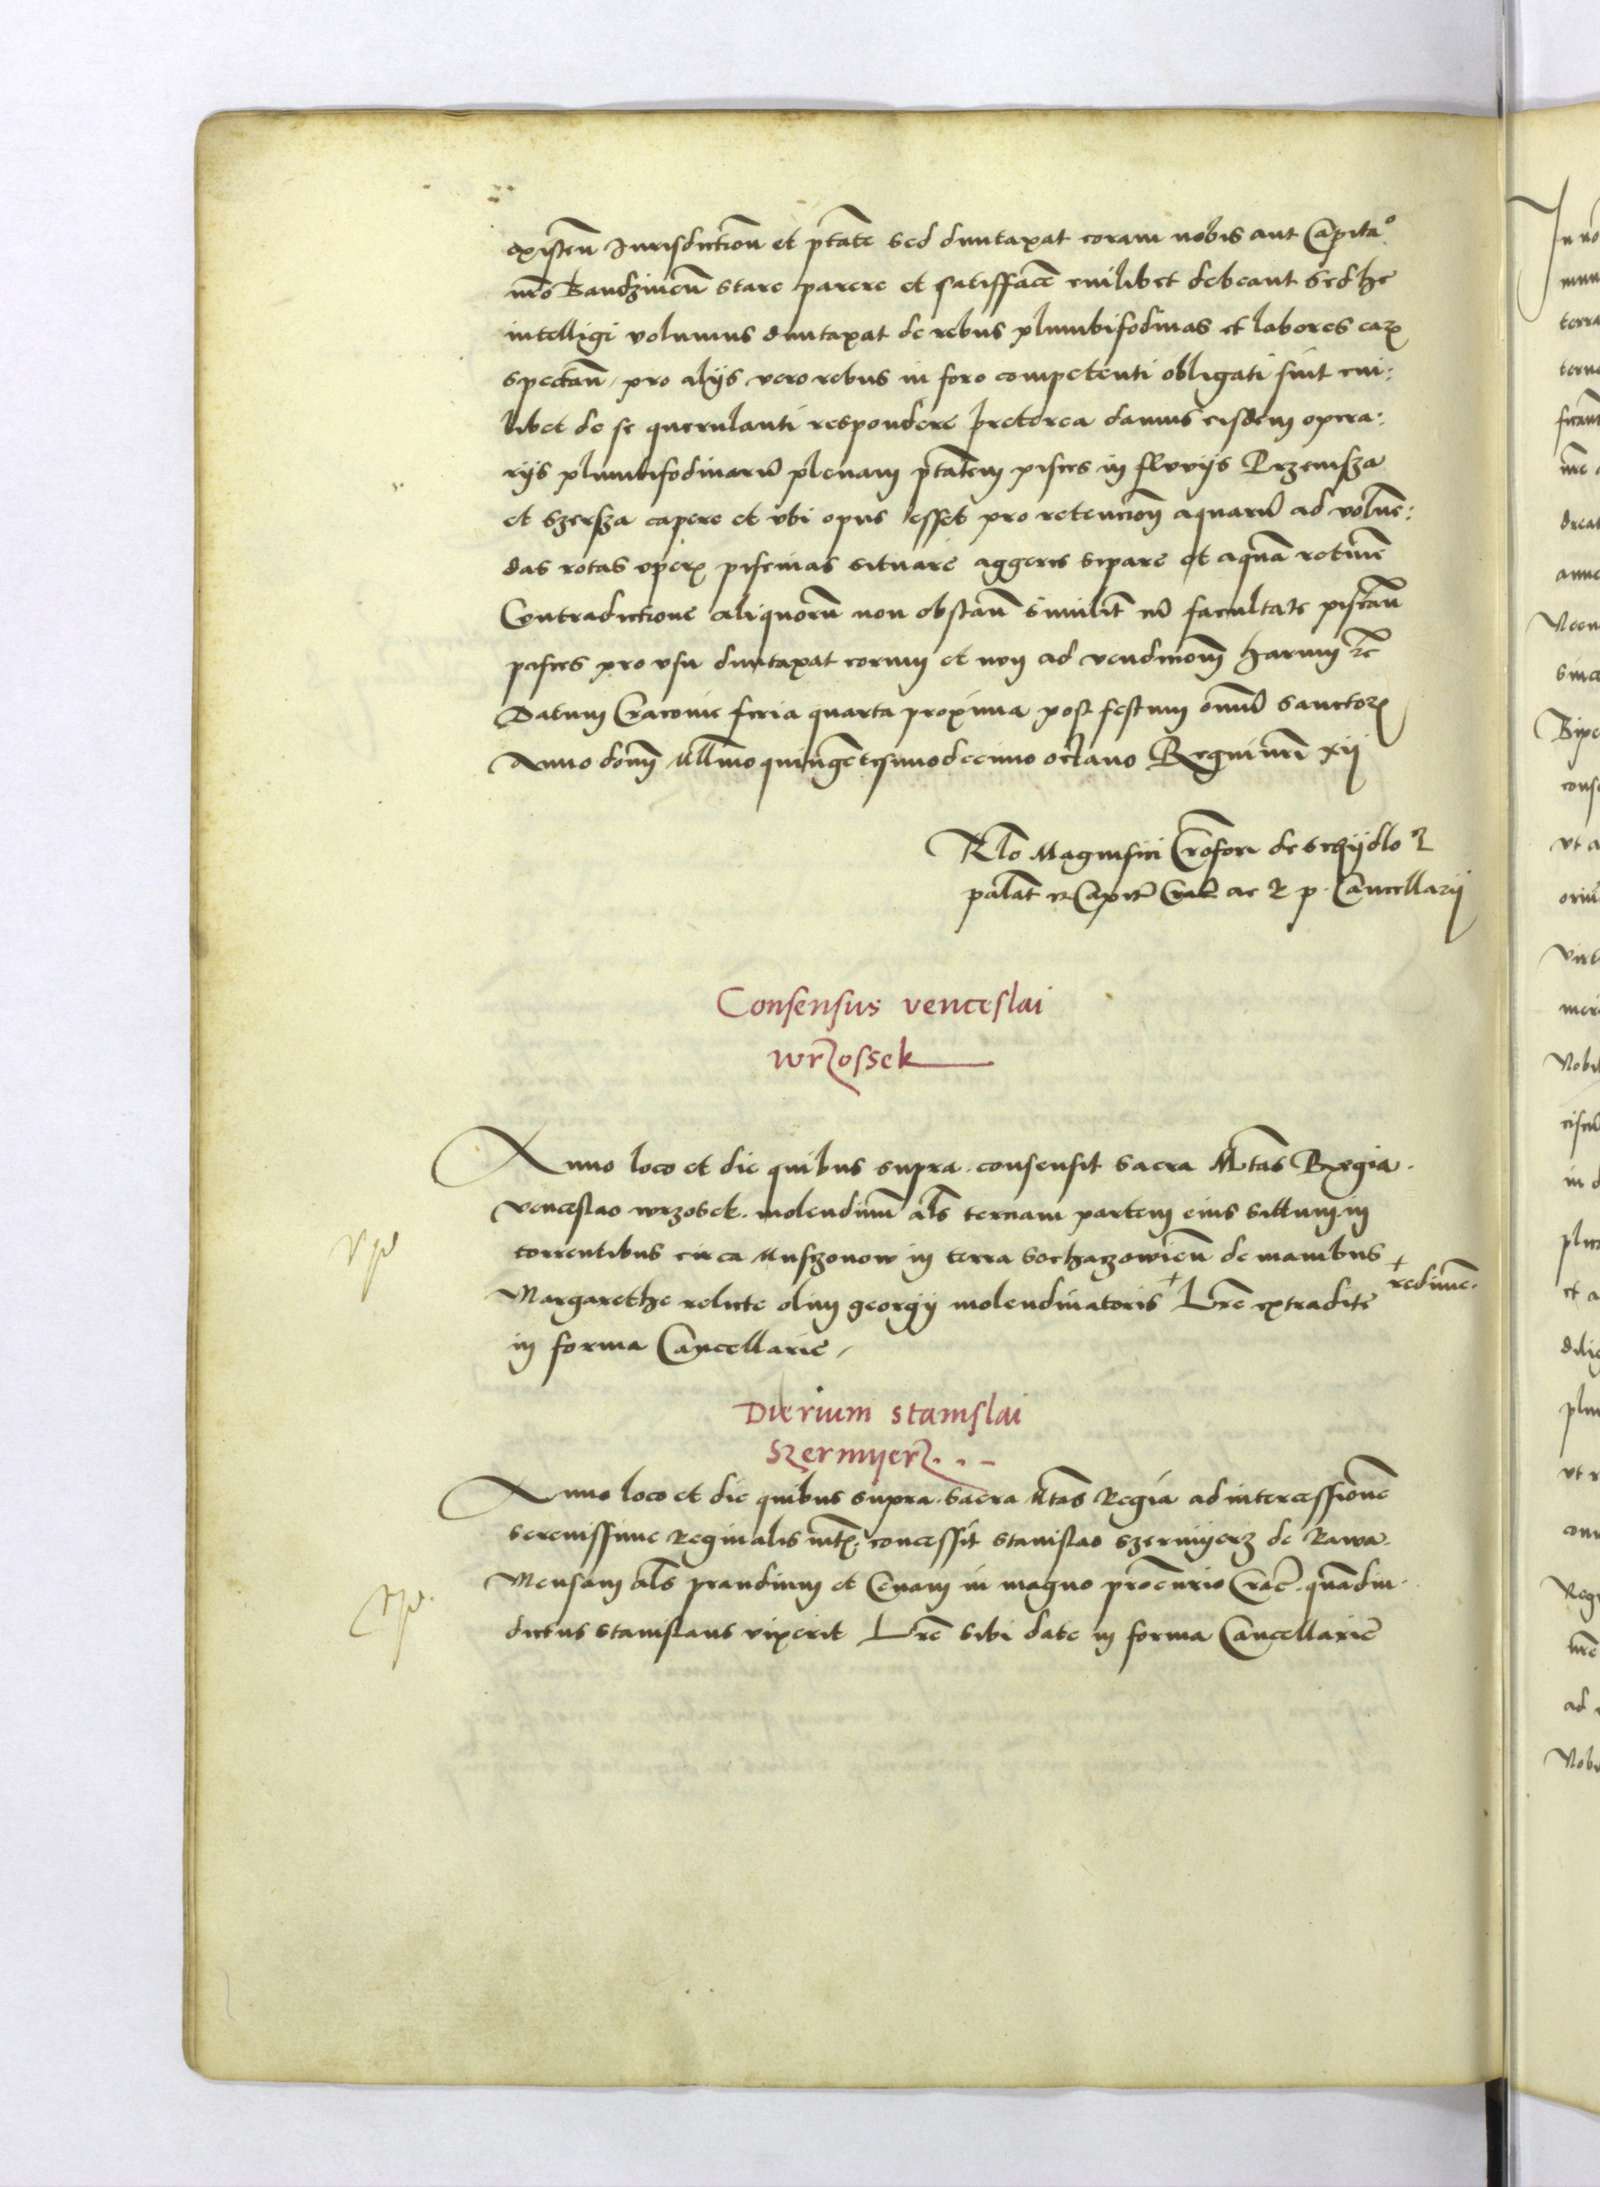 existen̄ Jurisdiction̄ et ptāte sed duntaxat coram nobis aut Capita°
nrō Bandzinen̄ stare parere et satisfface cuilibet debeant Sed hec
intelligi volumus duntaxat de rebus plumbifodinas et labores earꝝ
spectan̄ pro alijs vero rebus in foro competenti obligati sint cui:
libet de se querulanti respondere Preterea damus eisdem opera:
rijs plumbifodinarū plenam ptātem pisces in fluvijs Przemsza
et Szersza capere et vbi opus esset pro retencion̄ aquarū ad volue:
das rotas operꝝ piscinas situare aggeres sipare et aquā retinē
Contradictione aliquorū non obstan̄ similit cū facultate piscan̄
pisces pro vsu duntaxat eorum et non ad vendicionem harum ꝛc̄
Datum Cracovie feria quarta proxima post festum omniū sanctorꝝ
Anno domī Millmo quingetesimodecimo octavo Regni nrī xij
Rlō Magnifici Crōfori de Schijdlo ꝛ
palāt et Capit Crac ac R p Cancellarij
Consensus venceslai
wrzossek
Anno loco et die quibus supra consensit Sacra Mtās Regia
venceslao wrzosek molendinū als ternam partem eius situm in
torrentibus circa Mszonow in terra Sochaczowien̄ de manibus
Margarethe relicte olim georgij molendinatoris + Lrē extradite + redimē.
in forma Cancellarie
Vpe
Stanislai
Szermijerz
Anno loco et die quibus supra Sacra Mtās Regia ad intercessionē
serenissime Reginalis mtꝭ concessit Stanislao Szermijerz de Rawa
Mensam als prandium et Cenam in magno procurio Crac quādiu
dictus Stanislaus vixerit Lrē sibi date in forma Cancellarie
Vpe.